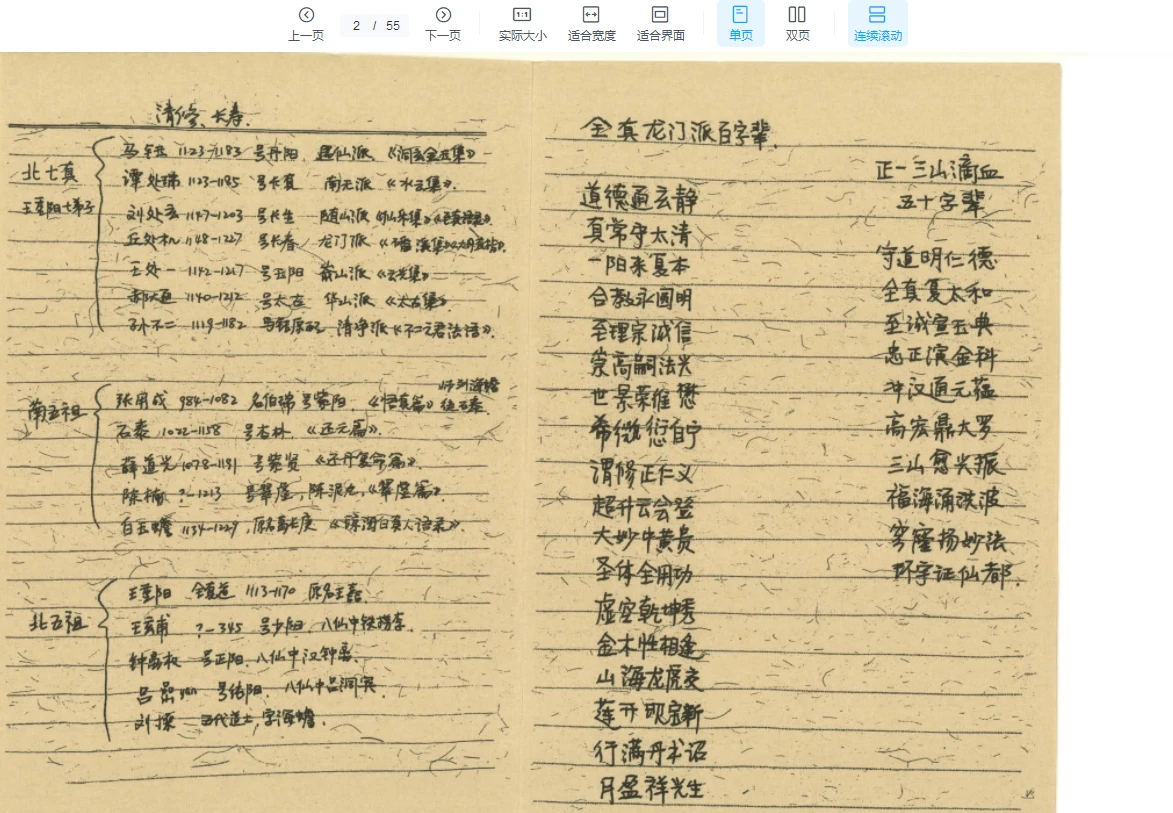 上一页
2 / 55
下一页
1:1
实际大小
适合宽度
适合界面
单页
双页
连续滚动
清修、长寿.
北七真
王重阳七弟子
马钰 1123-1183 号丹阳 遇仙派 《洞玄金玉集》
谭处端 1123-1185 号长真 南无派 《水云集》.
刘处玄 1147-1203 号长生 随山派 《仙乐集》
丘处机 1148-1227 号长春 龙门派 《磻溪集》《大丹直指》
王处一 1142-1217 号玉阳 嵛山派 《云光集》
郝大通 1140-1212 号太古 华山派 《太古集》
孙不二 1119-1182 马钰原配 清净派《不二元君法语》.
南五祖
师刘海蟾
张用成 984-1082 名伯端 号紫阳 《悟真篇》 徒石泰
石泰 1022-1158 号杏林 《还元篇》.
薛道光 1078-1191 号紫贤 《还丹复命篇》.
陈楠 ?-1213 号翠虚, 陈泥丸, 《翠虚篇》.
白玉蟾 1134-1229, 原名葛长庚 《琼琯白真人语录》.
北五祖
王重阳 全真道 1113-1170 原名王嚞
王玄甫 ?-345 号少阳. 八仙中铁拐李.
钟离权 号正阳. 八仙中汉钟离.
吕喦yan 号纯阳. 八仙中吕洞宾
刘操 五代道士, 字海蟾.
全真龙门派百字辈.
道德通玄静
真常守太清
一阳来复本
合教永圆明
至理宗诚信
崇高嗣法兴
世景荣维懋
希微衍自宁
谓修正仁义
超升云会登
大妙中黄贵
圣体全用功
虚空乾坤秀
金木性相逢
山海龙虎交
莲开现宝新
行满丹书诏
月盈祥光生
正一三山滴血
五十字辈
守道明仁德
全真复太和
至诚宣玉典
忠正演金科
冲汉通元蕴
高宏鼎大罗
三山愈兴振
福海涌洪波
穹窿扬妙法
环宇证仙都.